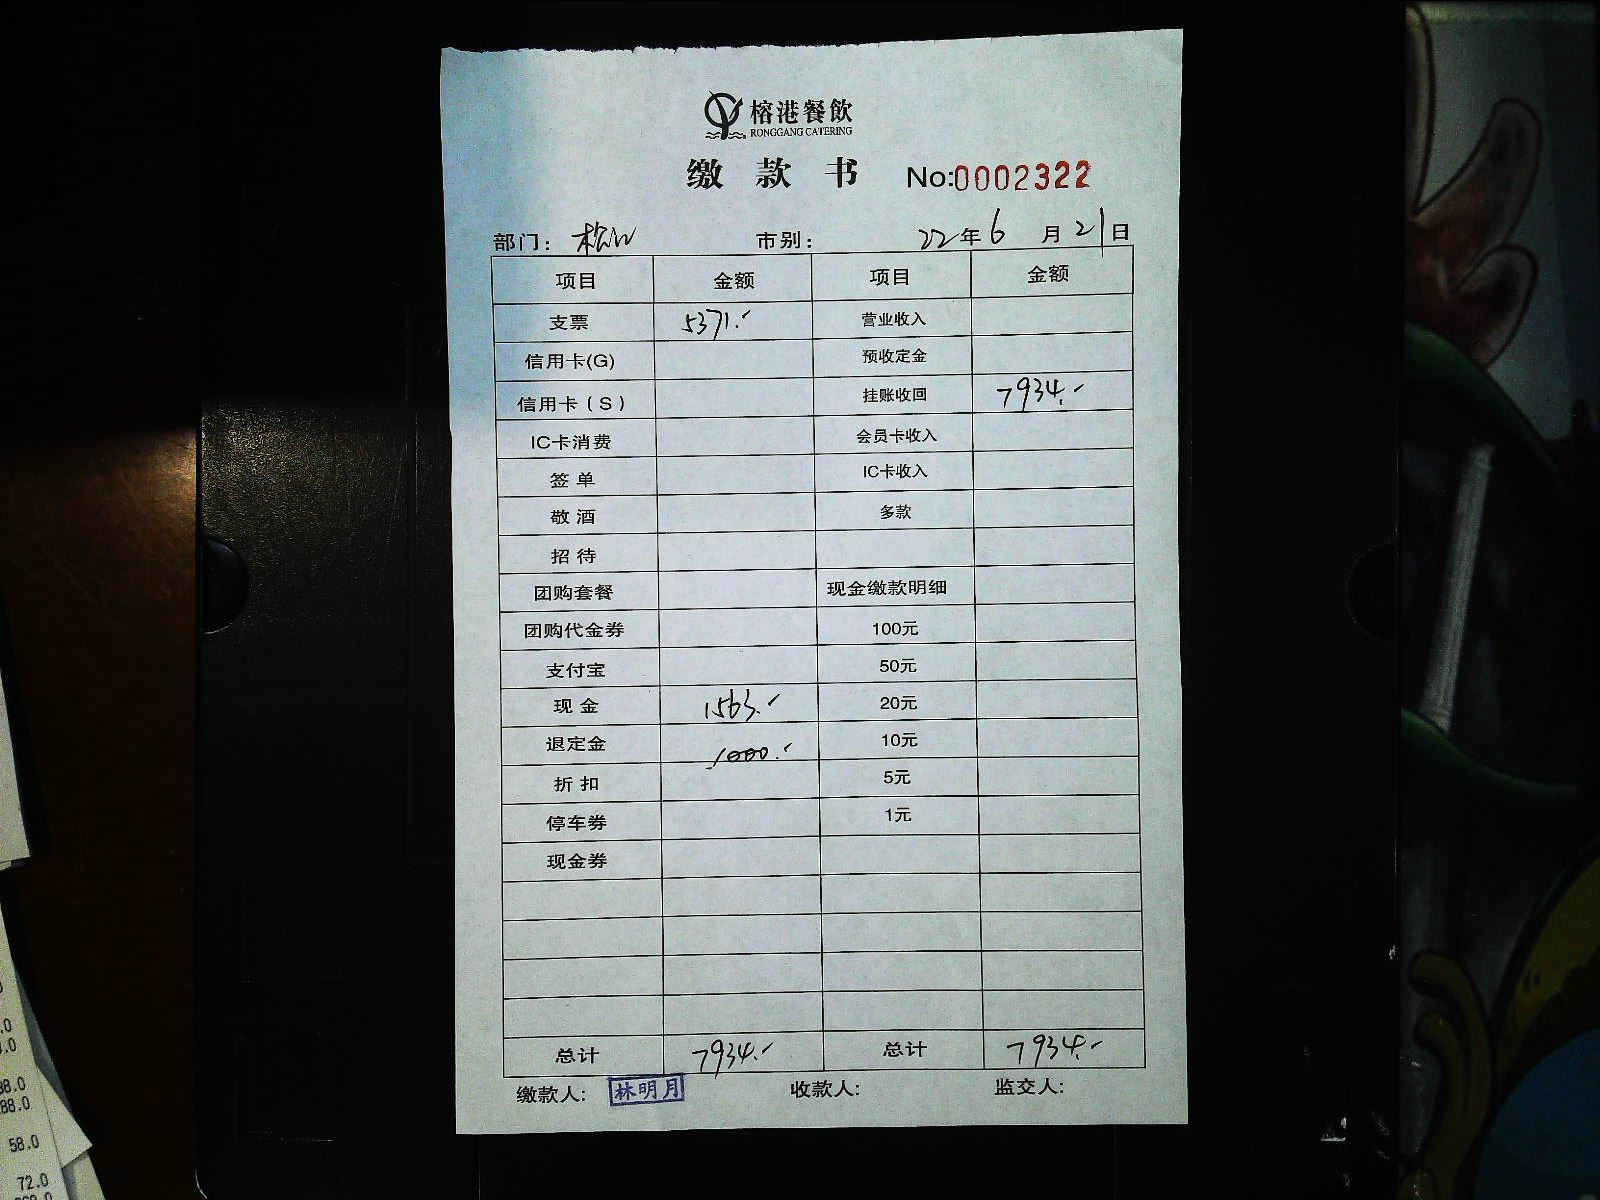 榕港餐飲
RONGGANG CATERING
缴款书 No:0002322
部门: 松山 市别: 22年6月21日
项目 金额 项目 金额
支票 5371.- 营业收入
信用卡(G) 预收定金
信用卡(S) 挂账收回 7934.-
IC卡消费 会员卡收入
签单 IC卡收入
敬酒 多款
招待
团购套餐 现金缴款明细
团购代金券 100元
支付宝 50元
现金 1563.- 20元
退定金 1000.- 10元
折扣 5元
停车券 1元
现金券
总计 7934.- 总计 7934.-
缴款人: 林明月 收款人: 监交人:
.0
.0
88.0
88.0
58.0
72.0